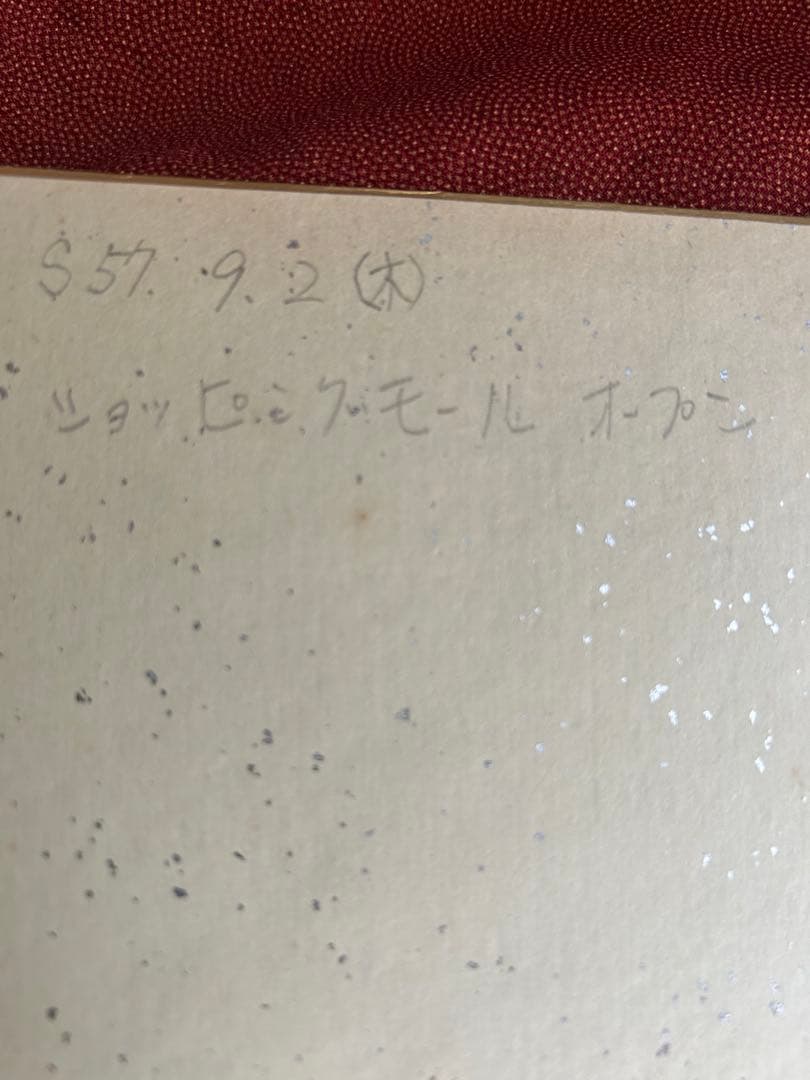 S57. 9. 2 (木)
ショッピングモール オープン